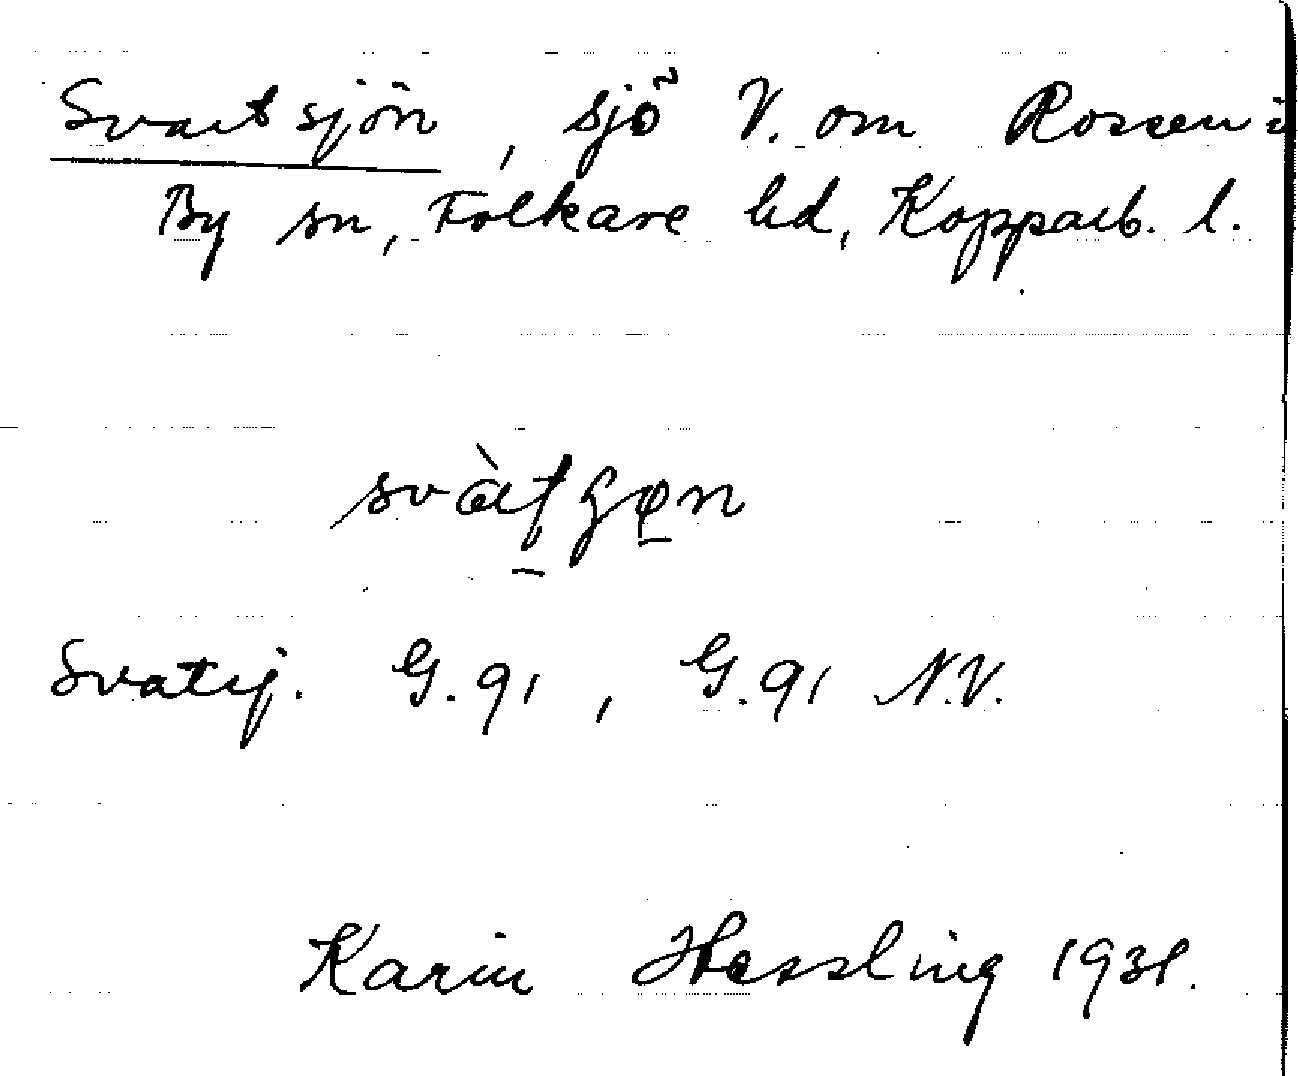 Svartsjön, sjö V. om Rossen i
By sn, Folkare hd, Kopparb. l.
Svartsj. G.91, G.91 N.V.
Karin Hessling 1931.